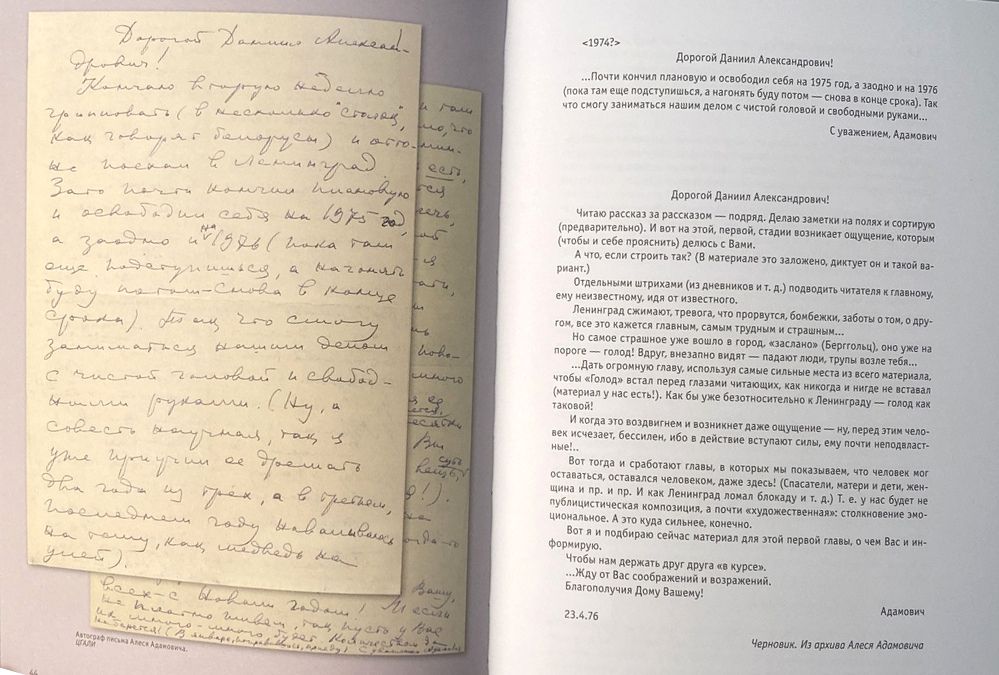 Дорогой Даниил Алексан-
дрович!
Кончаю вторую неделю
гриповать (в несколько "столак",
как говорят белорусы) и опто-
не поехал в Ленинград.
Зато почти кончил плановую
и освободил себя на 1975 год,
а заодно и на 1976 (пока там
еще подступишься, а нагонять
буду потом – снова в конце
срока). Так что смогу
заниматься нашим делом
с чистой головой и свобод-
ными руками. (Ну, а
совесть научная, так я
уже приучил ее дремать
два года из трех, а в третьем,
последнем году наваливаюсь
на тему, как медведь на
улей).
всех – с Новым годом! И если
не
их много-много будет
Автограф письма Алеся Адамовича.
ЦГАЛИ
44
<1974?>
Дорогой Даниил Александрович!
...Почти кончил плановую и освободил себя на 1975 год, а заодно и на 1976
(пока там еще подступишься, а нагонять буду потом — снова в конце срока). Так
что смогу заниматься нашим делом с чистой головой и свободными руками...
С уважением, Адамович
Дорогой Даниил Александрович!
Читаю рассказ за рассказом — подряд. Делаю заметки на полях и сортирую
(предварительно). И вот на этой, первой, стадии возникает ощущение, которым
(чтобы и себе прояснить) делюсь с Вами.
А что, если строить так? (В материале это заложено, диктует он и такой ва-
риант.)
Отдельными штрихами (из дневников и т. д.) подводить читателя к главному,
ему неизвестному, идя от известного.
Ленинград сжимают, тревога, что прорвутся, бомбежки, заботы о том, о дру-
гом, все это кажется главным, самым трудным и страшным...
Но самое страшное уже вошло в город, «заслано» (Берггольц), оно уже на
пороге — голод! Вдруг, внезапно видят — падают люди, трупы возле тебя...
...Дать огромную главу, используя самые сильные места из всего материала,
чтобы «Голод» встал перед глазами читающих, как никогда и нигде не вставал
(материал у нас есть!). Как бы уже безотносительно к Ленинграду — голод как
таковой!
И когда это воздвигнем и возникнет даже ощущение — ну, перед этим чело-
век исчезает, бессилен, ибо в действие вступают силы, ему почти неподвласт-
ные!..
Вот тогда и сработают главы, в которых мы показываем, что человек мог
оставаться, оставался человеком, даже здесь! (Спасатели, матери и дети, жен-
щина и пр. и пр. И как Ленинград ломал блокаду и т. д.) Т. е. у нас будет не
публицистическая композиция, а почти «художественная»: столкновение эмо-
циональное. А это куда сильнее, конечно.
Вот я и подбираю сейчас материал для этой первой главы, о чем Вас и ин-
формирую.
Чтобы нам держать друг друга «в курсе».
...Жду от Вас соображений и возражений.
Благополучия Дому Вашему!
Адамович
23.4.76
Черновик. Из архива Алеся Адамовича